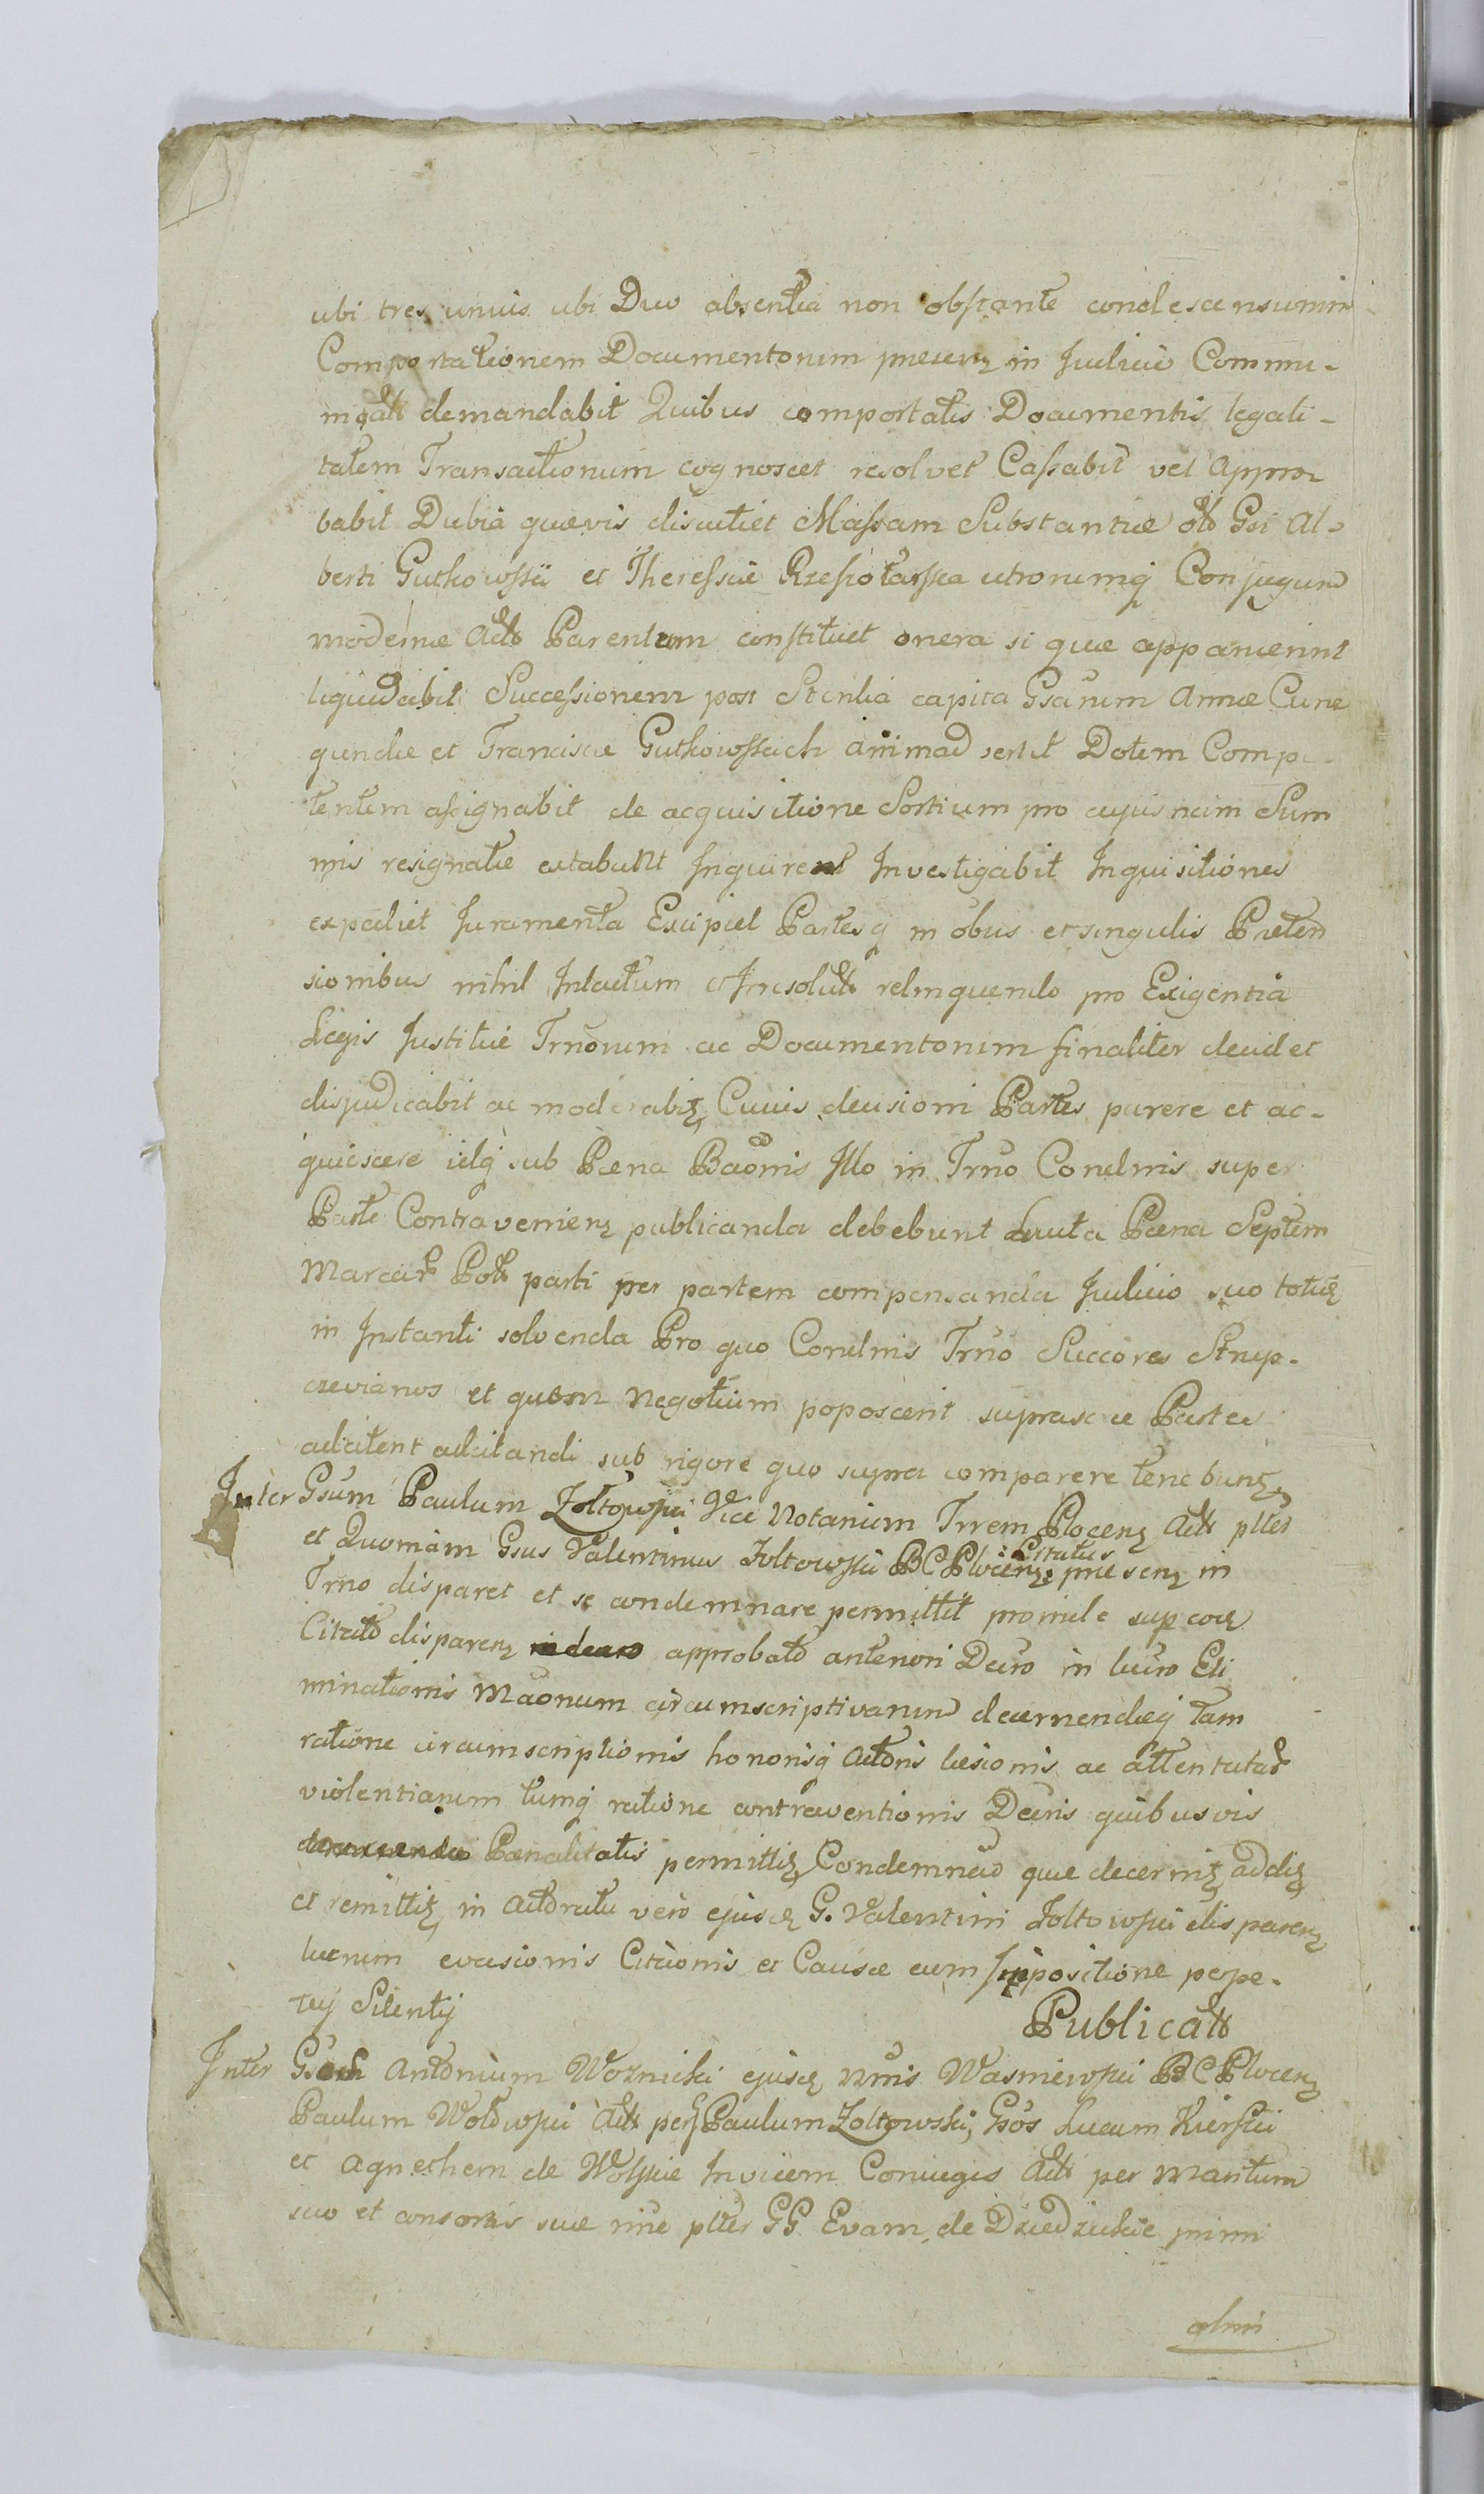 ubi tres unius ubi Duo absentia non obstante condescensum in
Comportationem Documentorum presenz in Judicio Commu-
nicatt demandabit Quibus comportatis Documentis legali-
tatem Transactionum cognoscet resolvet Cassabit vel Appro
babit Dubia quævis discutiet Massam Substantiæ olb Gsi Al-
berti Gutkowskii et Theressiæ utrorumq Conjugum
modernæ Actt Parentum constituet onera si quæ apparuerint
liquidabit Successionem post Sterilia capita Gsarum Annæ Cune
gundæ et Franciscæ Gutkowskich animadvertet Dotem Compe
tentem assignabit de acquisitione Sortium pro cujusnam Sum
mis resignatæ extabunt Inquiret Investigabit Inquisitiones
expediet Juramenta Excipiet Partesq in obus et singulis Præten
sionibus nihil Intactum et Irresolutt relinquendo pro Exigentia
Legis Justitiæ Trnorum ac Documentorum finaliter decidet
disjudicabit ac moderabitz Cuius decisioni Partes parere et ac-
quiescere idq sub Pæna Baonis Illo in Trno Condnis super
Parte Contravenienz publicanda debebunt Luita Pæna Septem
Marcar Poll parti per partem compensanda Judicio suo totiez
in Instanti solvenda Pro quo Condnis Trno Succores Strup-
czevianos et quem Negotium poposcerit suprascæ Partes
adcitent adcitandi sub rigore quo supra comparere tenebunz
Inter Gsum Paulum Zołtowski Vice Notarium Trrem Plocenz Actt plter
et Quoniam Gsus Valentinus Zołtowski BC Plocenz Citatus præsenz in
Trno disparet et se condemnare permittit proinde sup eoz
Citato disparenz approbato anteriori Decro in lucro Eli
minationis Maonum circumscriptivarum decernendæq tam
ratione circumscriptionis honorisq Actoris læsionis ac attentatar
violentiarum tumq ratione contraventionis Decris quibusvis
Pænalitatis permittiz Condemnao quæ decernitz addiz
et remittiz in Actoratu vero ejusdz G. Valentini Zołtowski disparenz
lucrum evasionis Citaonis et Causæ cum Impositione perpe-
tuj Silentij
Publicatt
Inter Gsum Antonium Woznicki ejusdz nmis Wasniewski BC Plocenz
Paulum Actt perq Paulum Zołtowski, Gsos Lucam Kierski
et Agnethem de Wolskie Invicem Coniuges Actt per Maritum
suo et consortis suæ nne plter GG Evam de Dziedzickie primi
olmi